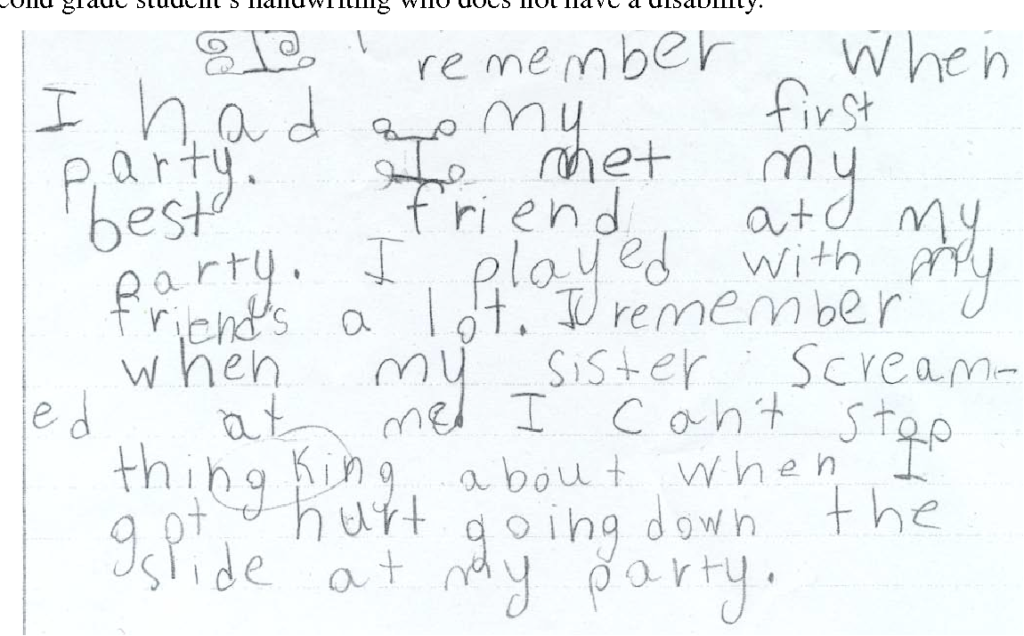 cond grade student's handwriting who does not have a disability.
I remember when
I had my first
party. I met my
best friend at my
party. I played with my
friends a lot. I remember
when my sister scream-
ed at me I can't stop
thingking about when I
got hurt going down the
slide at my party.